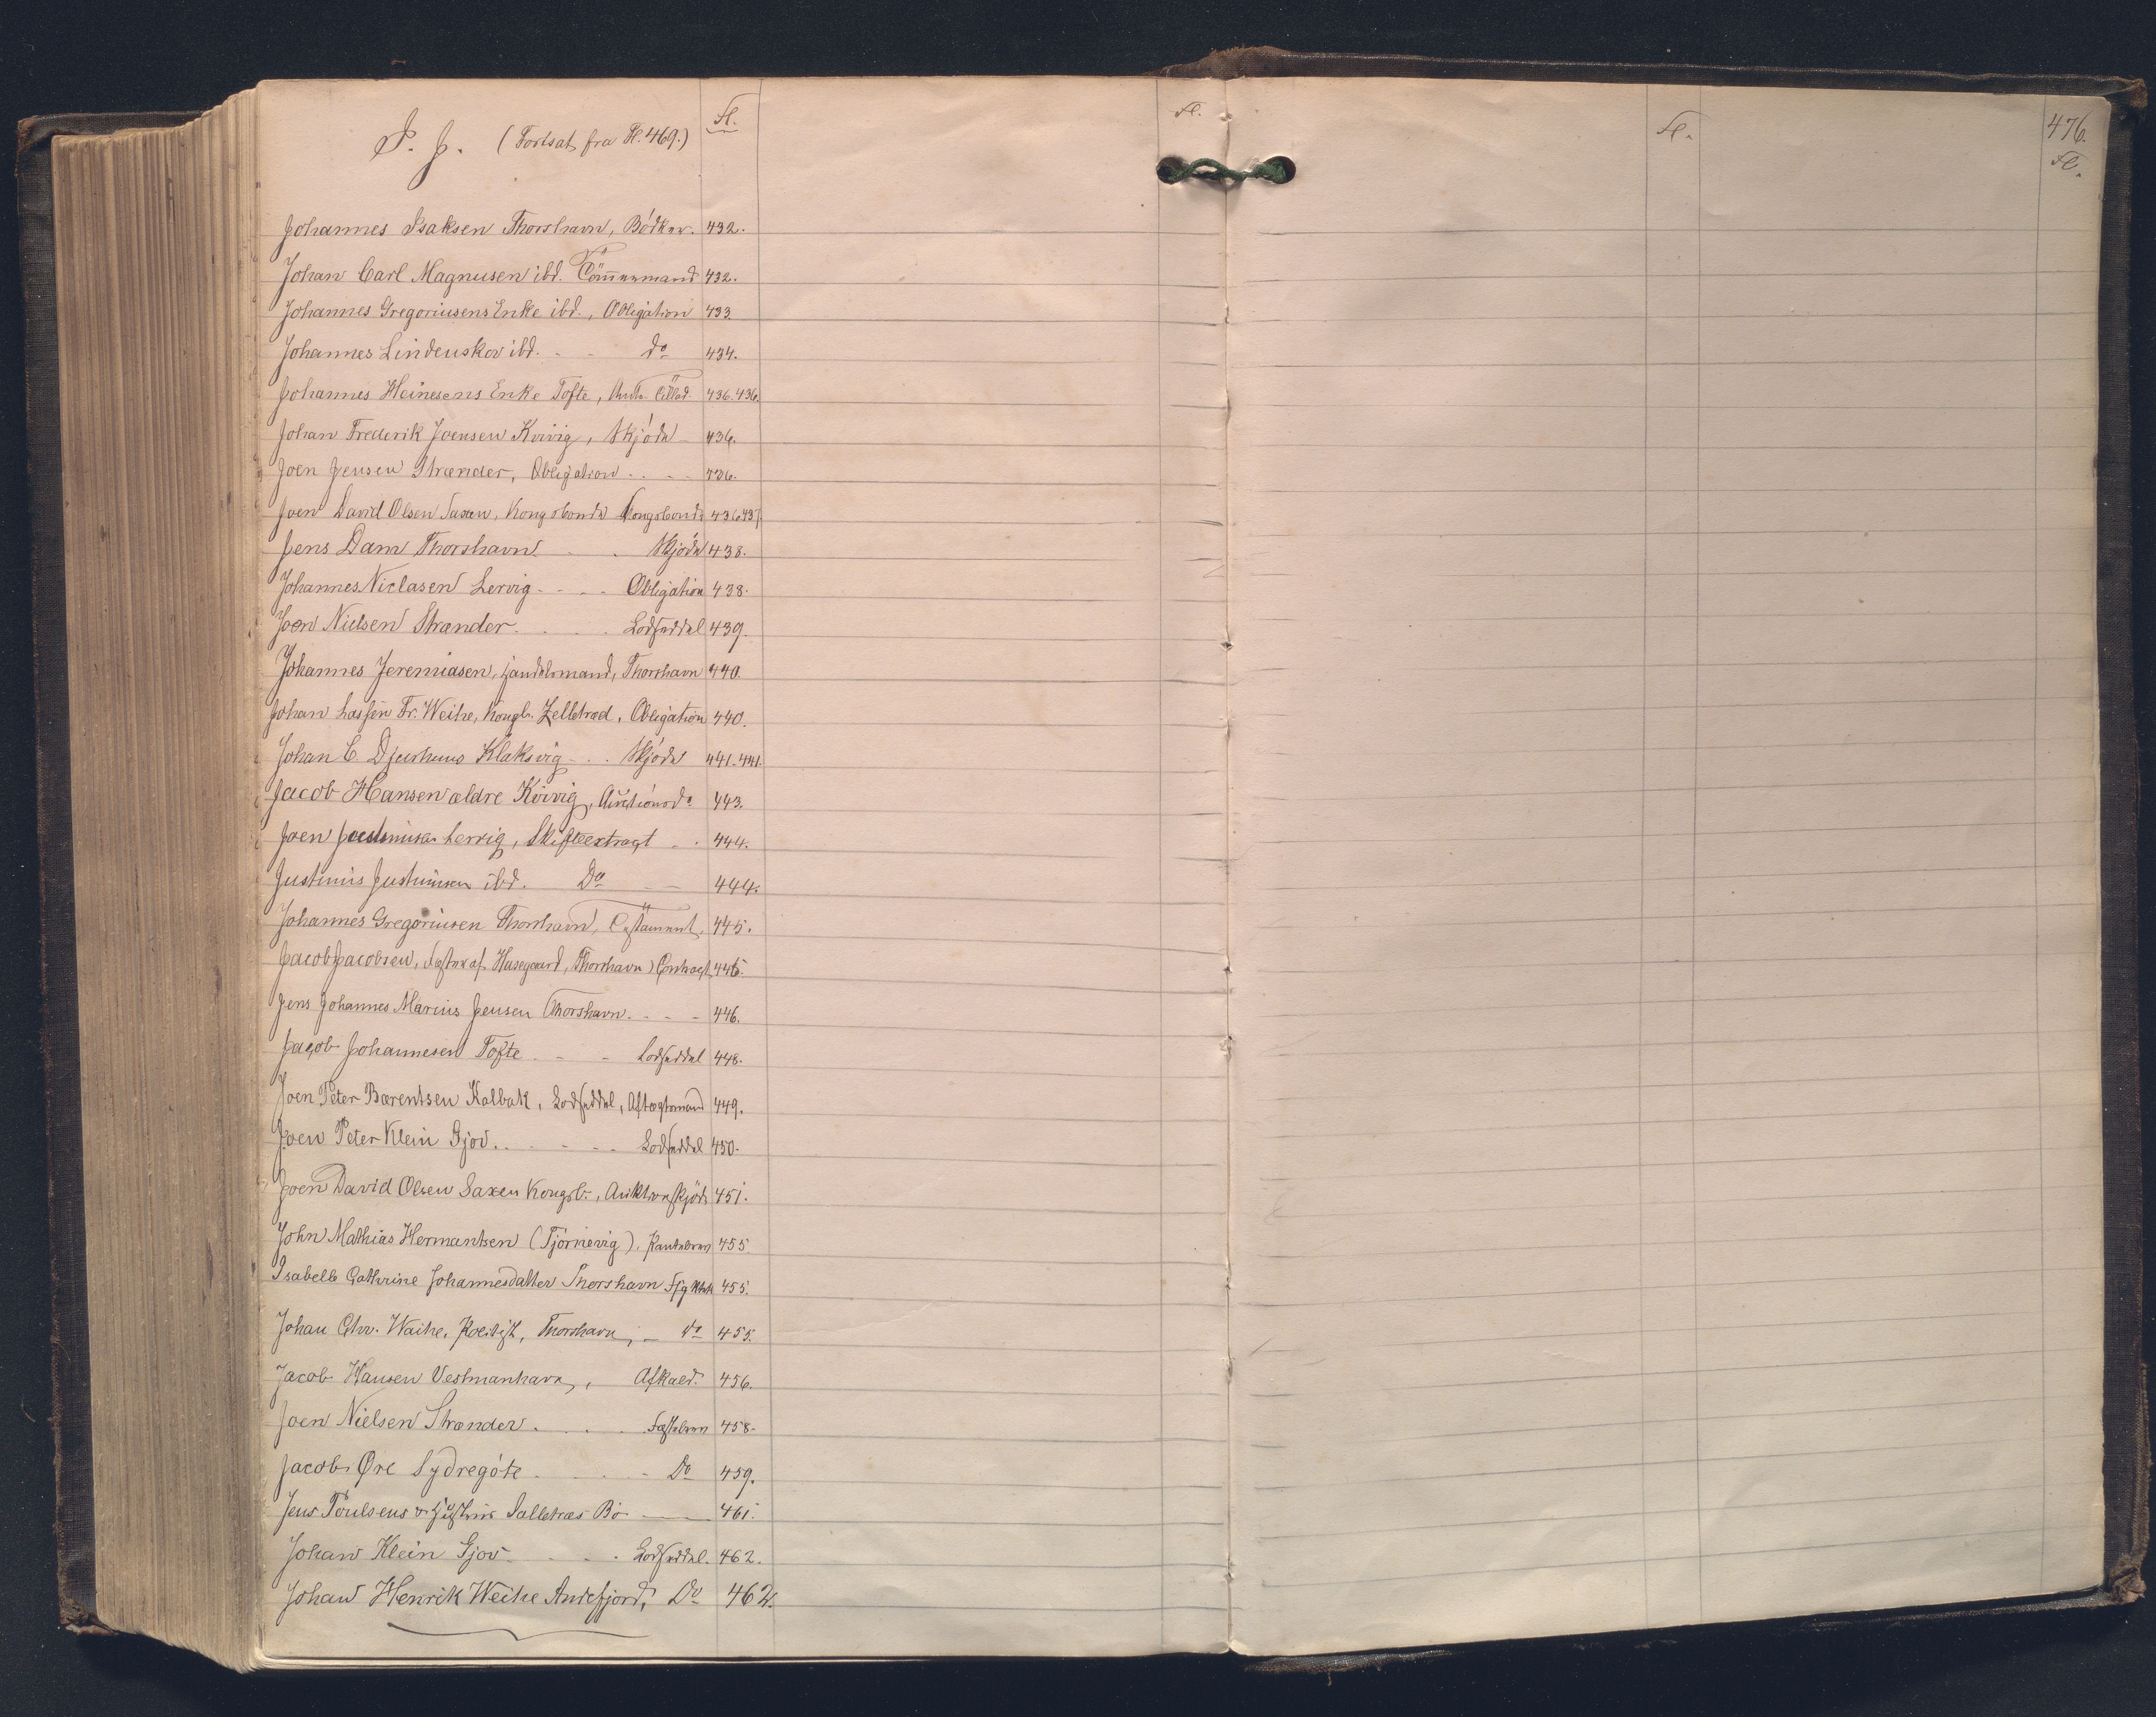 I. J. (Fortsat fra Fl. 469.) Fl.
Fl.
Fl.
476.
Fl.
Johannes Isaksen Thorshavn, Bödker. 432.
Johan Carl Magnusen ibd. Tömmermand 432.
Johannes Gregoriusens Enke ibd., Obligation 433.
Johannes Lindenskov ibd. - - do 434.
Johannes Heinesens Enke Tofte, 436.436.
Johan Frederik Joensen Kvivig, Skjöde - 436.
Joen Jensen Strænder, Obligation . . - - 436.
Joen David Olsen Saxen, Kongsbonde Kongsbonde 436.437.
Jens Dam Thorshavn - . Skjöde 438.
Johannes Niclasen Lervig - - - - Obligation 438.
Joen Nielsen Strænder . . . . Lodseddel 439.
Johannes Jeremiasen, Handelsmand, Thorshavn 440.
Johan Lassen Fr. Weihe, Kongb. Zelletræd, Obligation 440.
Johan C. Djurhuus Klaksvig - . . Skjöde 441.441.
Jacob Hansen ældre Kvivig, Auctionsdo 443.
Joen Justinusen Lervig, Skifteextract - . 444.
Justinus Justinusen ibd. Do - - 444.
Johannes Gregoriusen Thorshavn, Testament, 445.
Jacob Jacobsen, Fæster af Husegaard, Thorshavn) Contract 446.
Jens Johannes Marius Jensen Thorshavn. - - - 446.
Jacob Johannesen Tofte - - - Lodseddel 448.
Joen Peter Bærentsen Kalbak, Lodseddel, Aftægtsmand 449.
Joen Peter Klein Gjov. . - - - - Lodseddel 450.
Joen David Olsen Saxen Kongsb., Auktionsskjöde 451.
John Mathias Hermantsen (Tjörnevig). 455.
Isabelle Cathrine Johannesdatter Thorshavn 455.
Johan Chr. Weihe, Thorshavn, - do 455.
Jacob Hansen Vestmanhavn, Afkald. 456.
Joen Nielsen Strænder . . . . Fæstebrev 458.
Jacob Øre Sydregöte - . . - Do 459.
Jens Poulsens & Justins Salletræs Bo - 461.
Johan Klein Gjov - . . . Lodseddel. 462.
Johan Henrik Weihe Andefjord, Do 462.